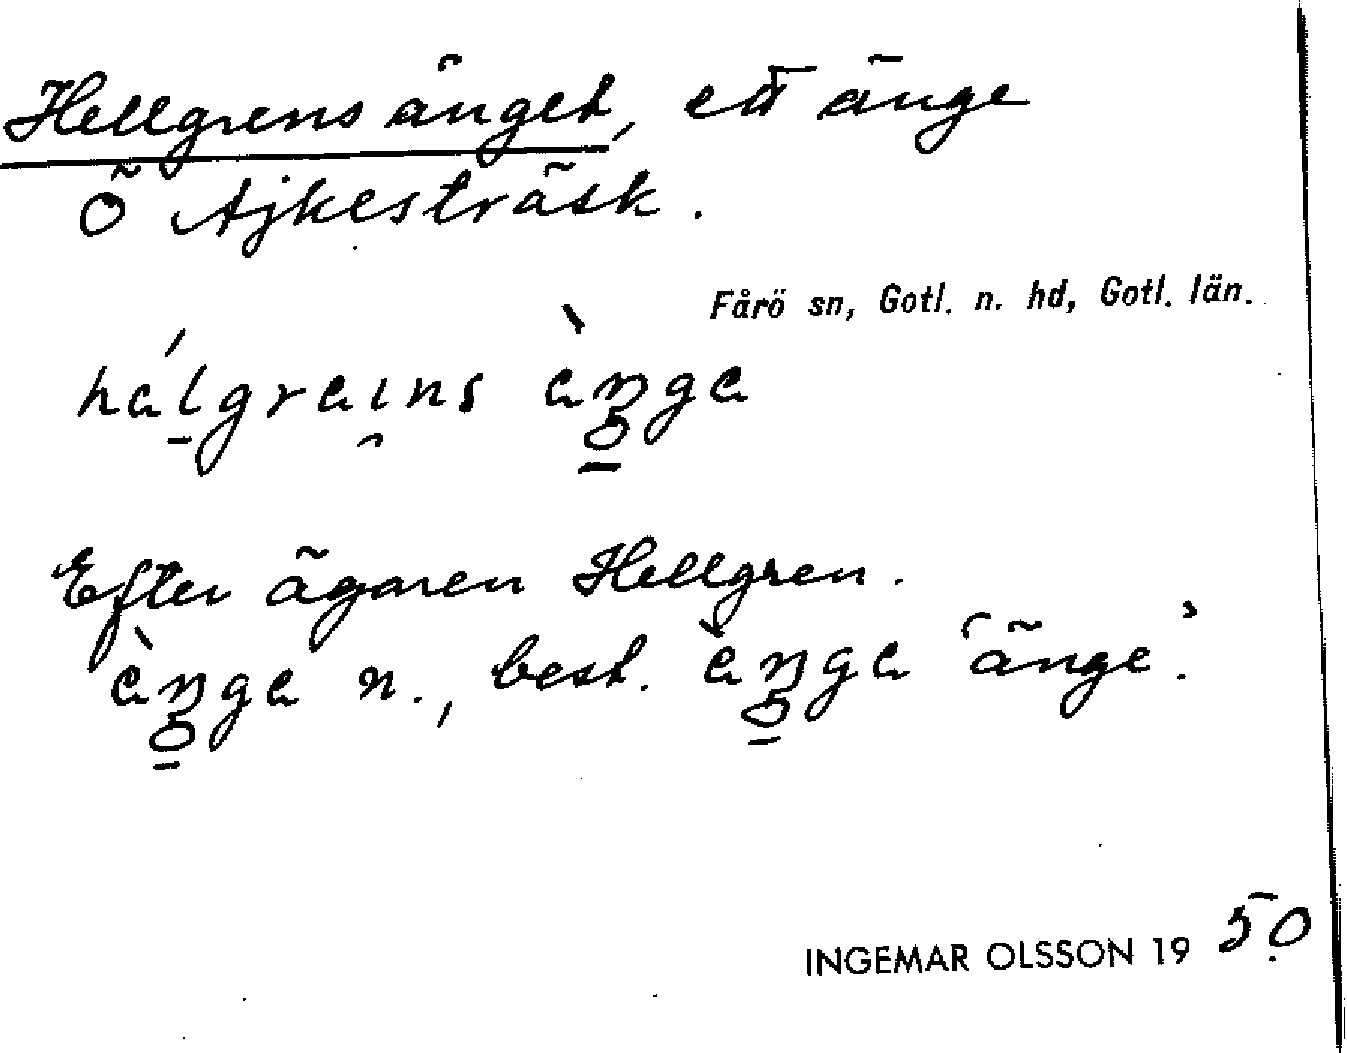 Hellgrens änget, ett änge
Ö Ajkesträsk.
Fårö sn, Gotl. n. hd, Gotl. län.
Efter ägaren Hellgren.
n., best. "änge".
INGEMAR OLSSON 19 50